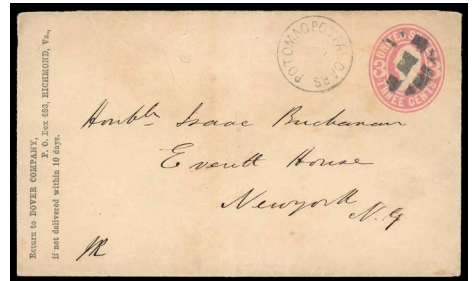 Return to DOVER COMPANY,
P. O. Box 483, RICHMOND, Va.,
if not delivered within 10 days.
POTOMAC POSTAL CARS
UNITED S
THREE CENTS
Honble Isaac Buchanan
Everett House
Newyork
N.Y